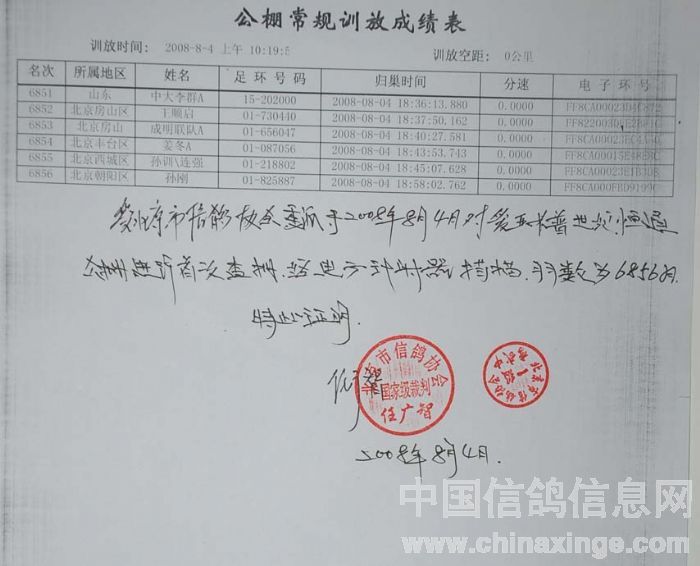 公棚常规训放成绩表
训放时间: 2008-8-4 上午 10:19:5 训放空距: 0公里
名次 所属地区 姓名 足环号码 归巢时间 分速 电子环号
6851 山东 中大李群A 15-202000 2008-08-04 18:36:13.880 0.0000
6852 北京房山区 王顺启 01-730440 2008-08-04 18:37:50.162 0.0000
6853 北京房山 成明联队A 01-656047 2008-08-04 18:40:27.581 0.0000
6854 北京丰台区 姜冬A 01-087056 2008-08-04 18:43:53.743 0.0000
6855 北京西城区 孙训\连强 01-218802 2008-08-04 18:45:07.628 0.0000
6856 北京朝阳区 孙刚 01-825887 2008-08-04 18:58:02.762 0.0000
市信鸽协会委派于2008年8月4日对爱亚卡普世纪恒通
公棚进行首次查棚, 经电子计时器扫描, 羽数为6856羽.
特此证明.
任广智
市信鸽协会
国家级裁判
任广智
2008年8月4日.
中国信鸽信息网
www.chinaxinge.com